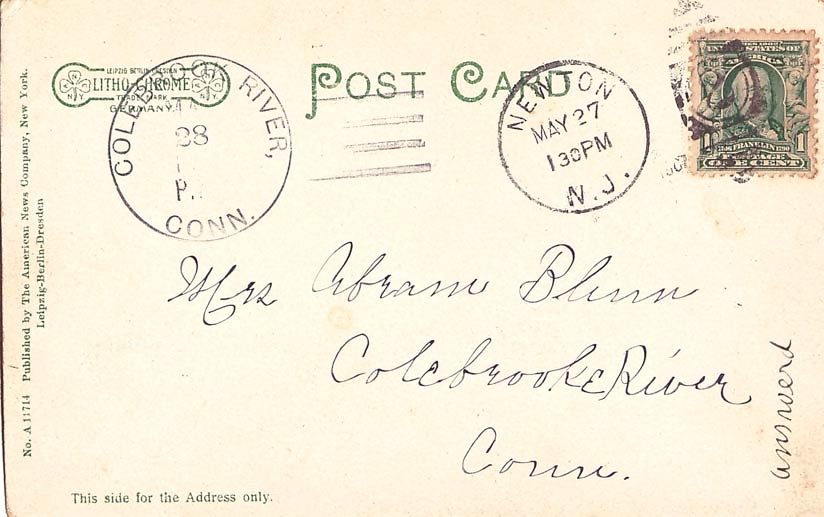 LEIPZIG BERLIN DRESDEN
LITHO-CHROME
TRADE MARK
GERMANY
POST CARD
COLEBROOK RIVER,
28
P.
CONN.
NEWTON
MAY 27
130PM
N.J.
UNITED STATES OF
AMERICA
1 FRANKLIN 1
POSTAGE
ONE CENT
Mrs Abram Blunn
Colebrooke River
Conn.
answerd
No. A 11714 Published by The American News Company, New York.
Leipzig-Berlin-Dresden
This side for the Address only.